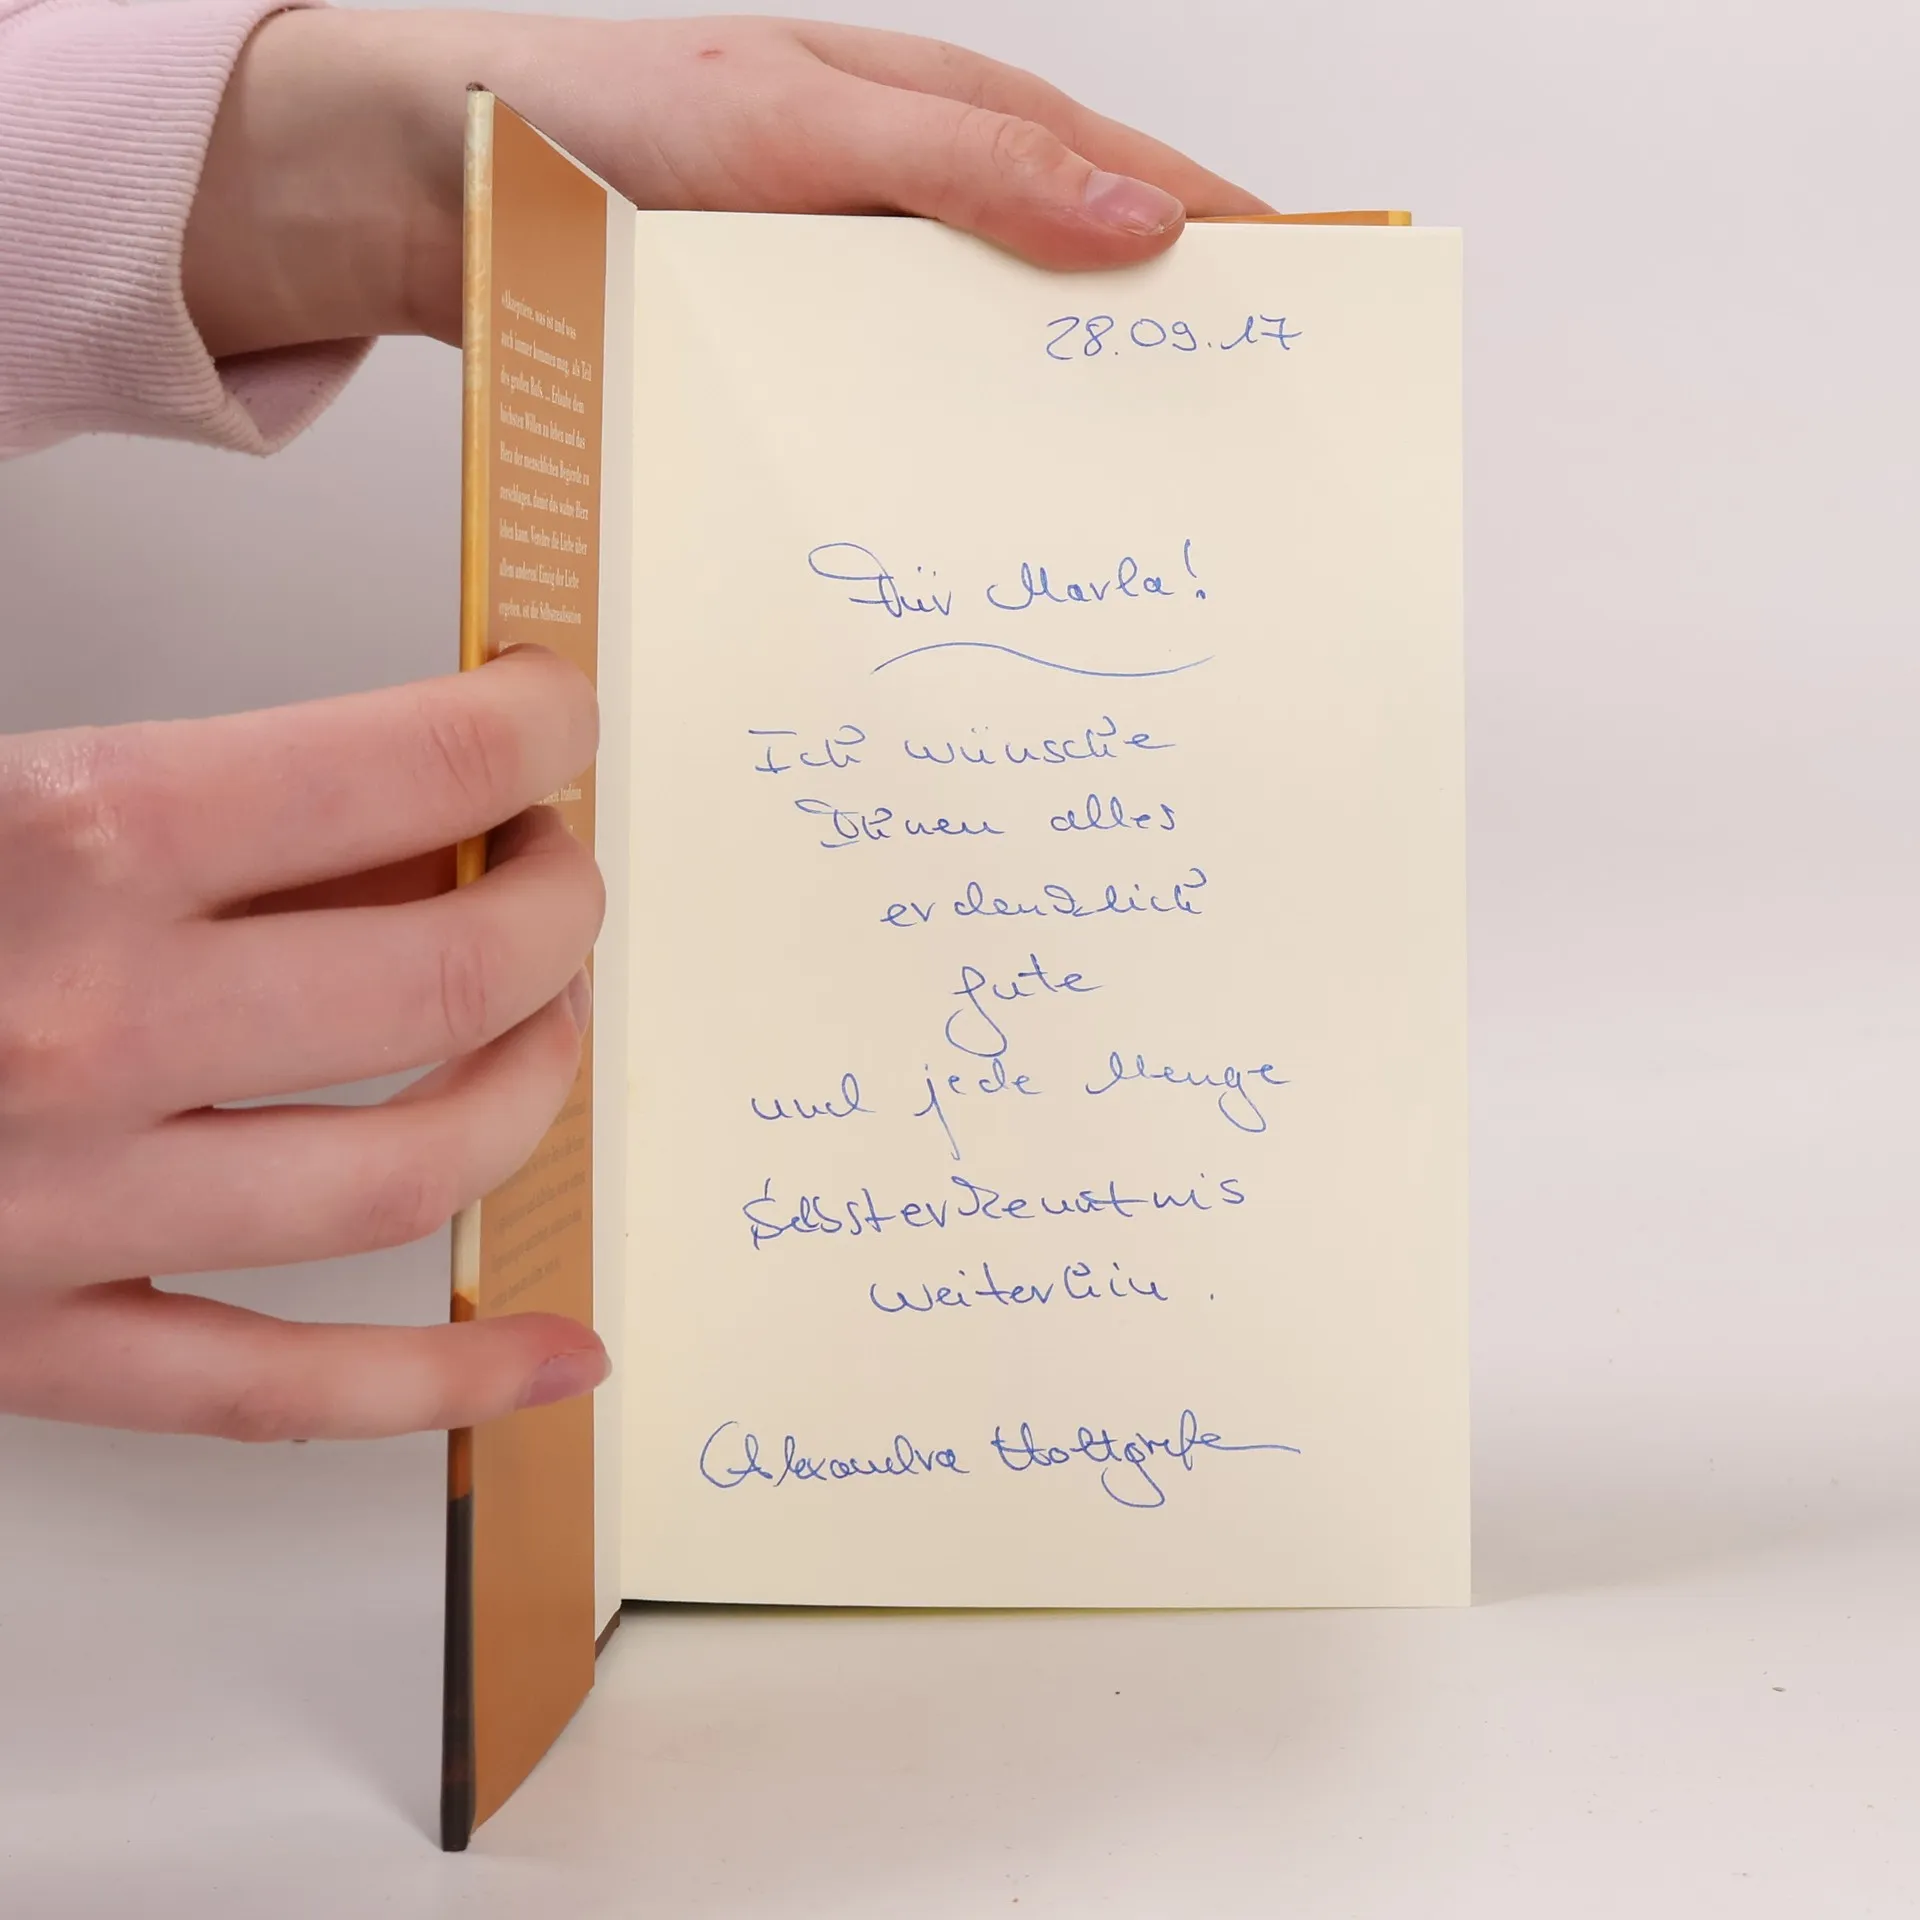 «Akzeptiere, was ist und was
auch immer kommen mag, als Teil
des großen Rufs. ... Erlaube dem
höchsten Willen zu leben und das
Herz der menschlichen Begierde zu
zerschlagen, damit das wahre Herz
leben kann. Verehre die Liebe über
allem anderen! Einzig der Liebe
ergeben, ist die Selbstrealisation
Tradition
28.09.17
Für Marla!
Ich wünsche
Ihnen alles
erdenklich
gute
und jede Menge
Selbsterkenntnis
weiterhin.
Alexandra Holtgrefe